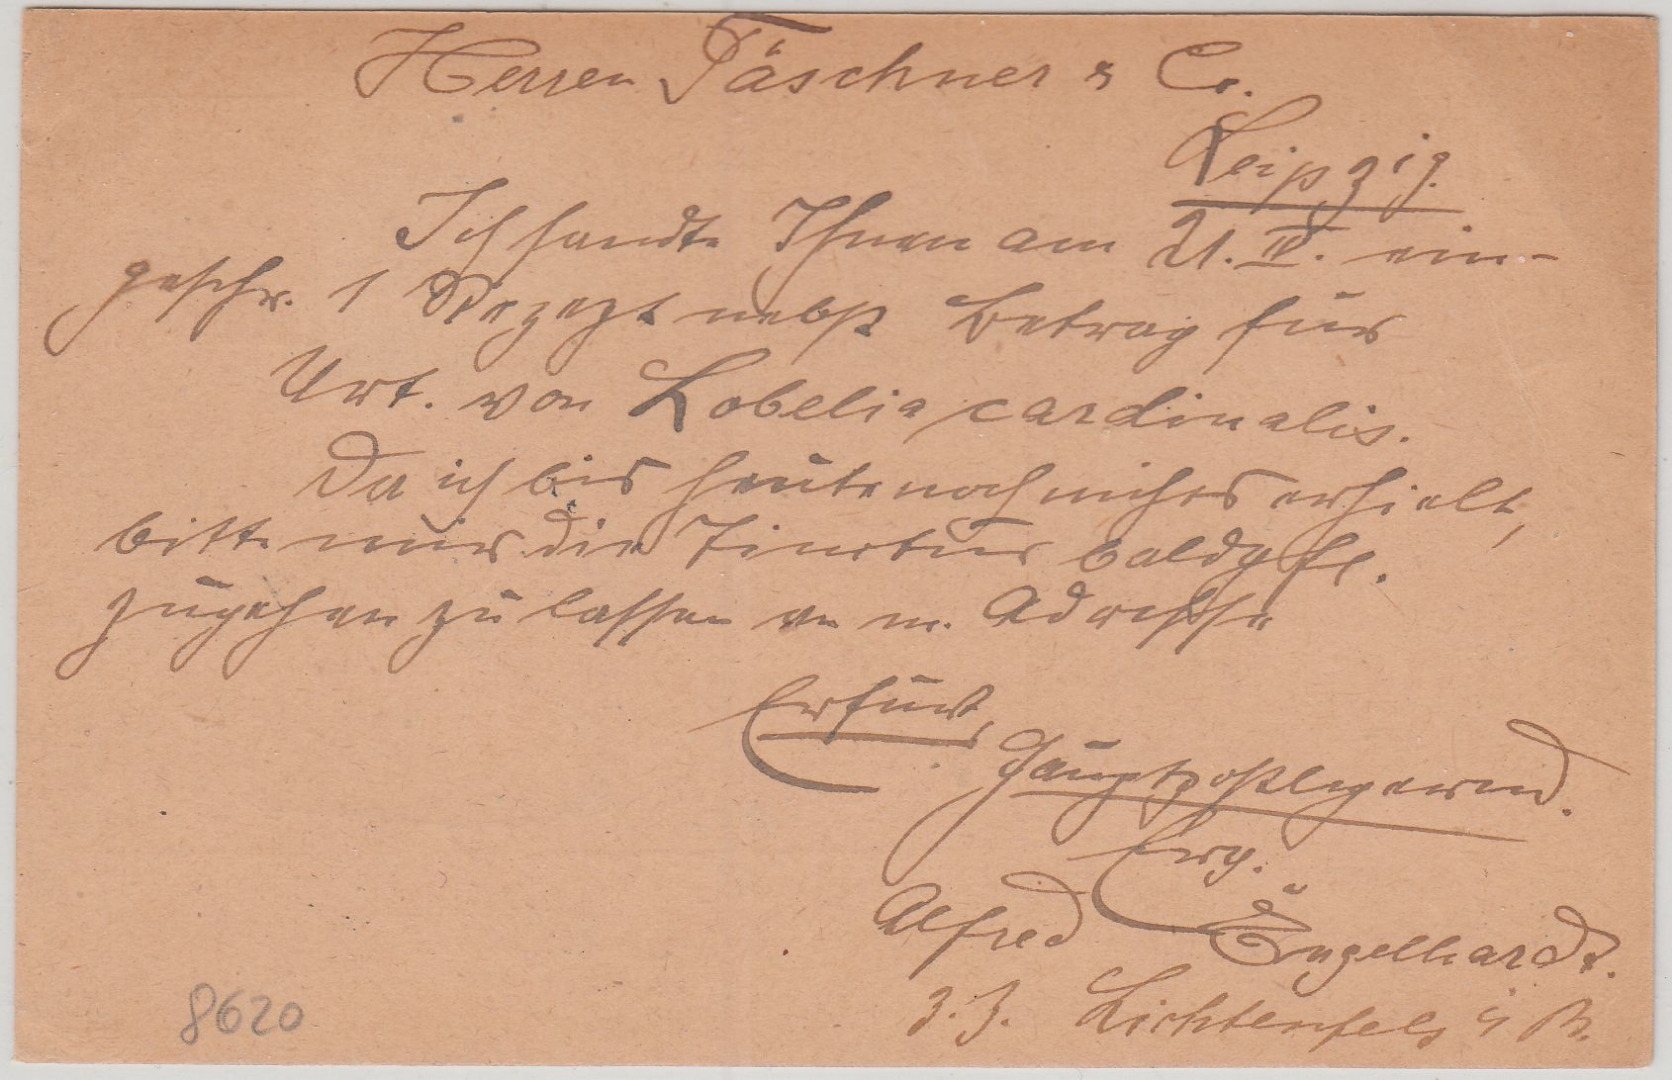 Herren Täschner & Co.
Leipzig.
Ich sandte Ihnen am 21. IV. ein-
geschr. 1 Rezept nebst Betrag für
Urt. von Lobelia cardinalis.
Da ich bis heute noch nichts erhielt,
bitte mir die Tinktur baldgfl.
zugehen zu lassen an m. Adresse
Erfurt,
Hauptpostlagernd.
Erg.
Alfred Engelhardt.
z. Z. Lichtenfels i B.
8620